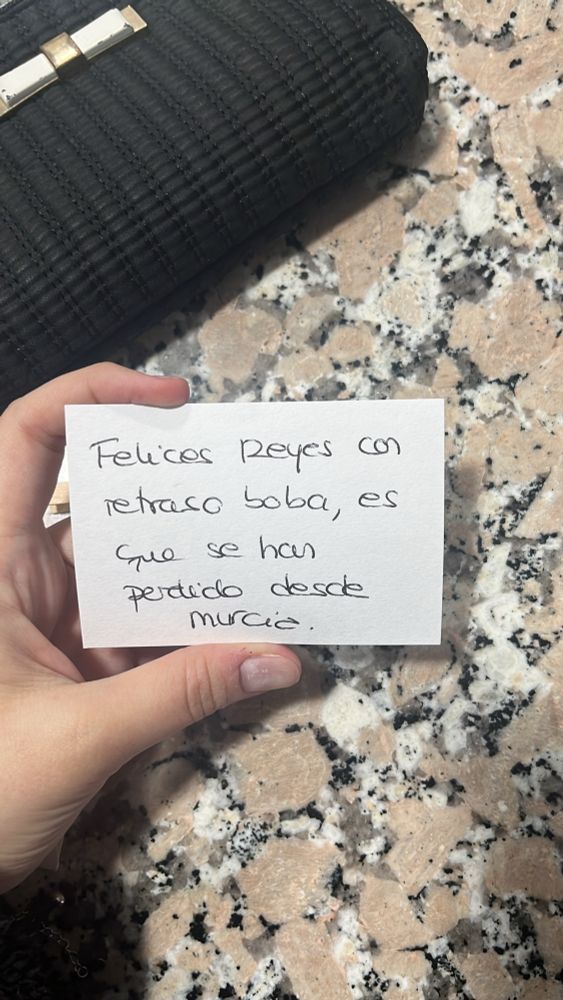 Felices Reyes con
retraso boba, es
que se han
perdido desde
murcia.